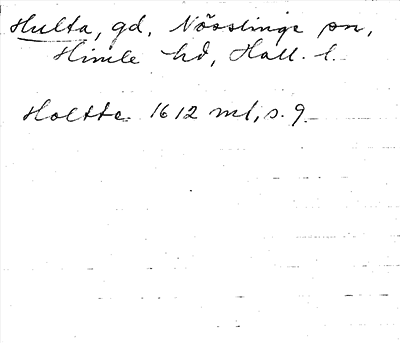 Hulta, gd, Nösslinge sn,
Himle hd, Hall. l.
Holtte 1612 ml, s. 9.